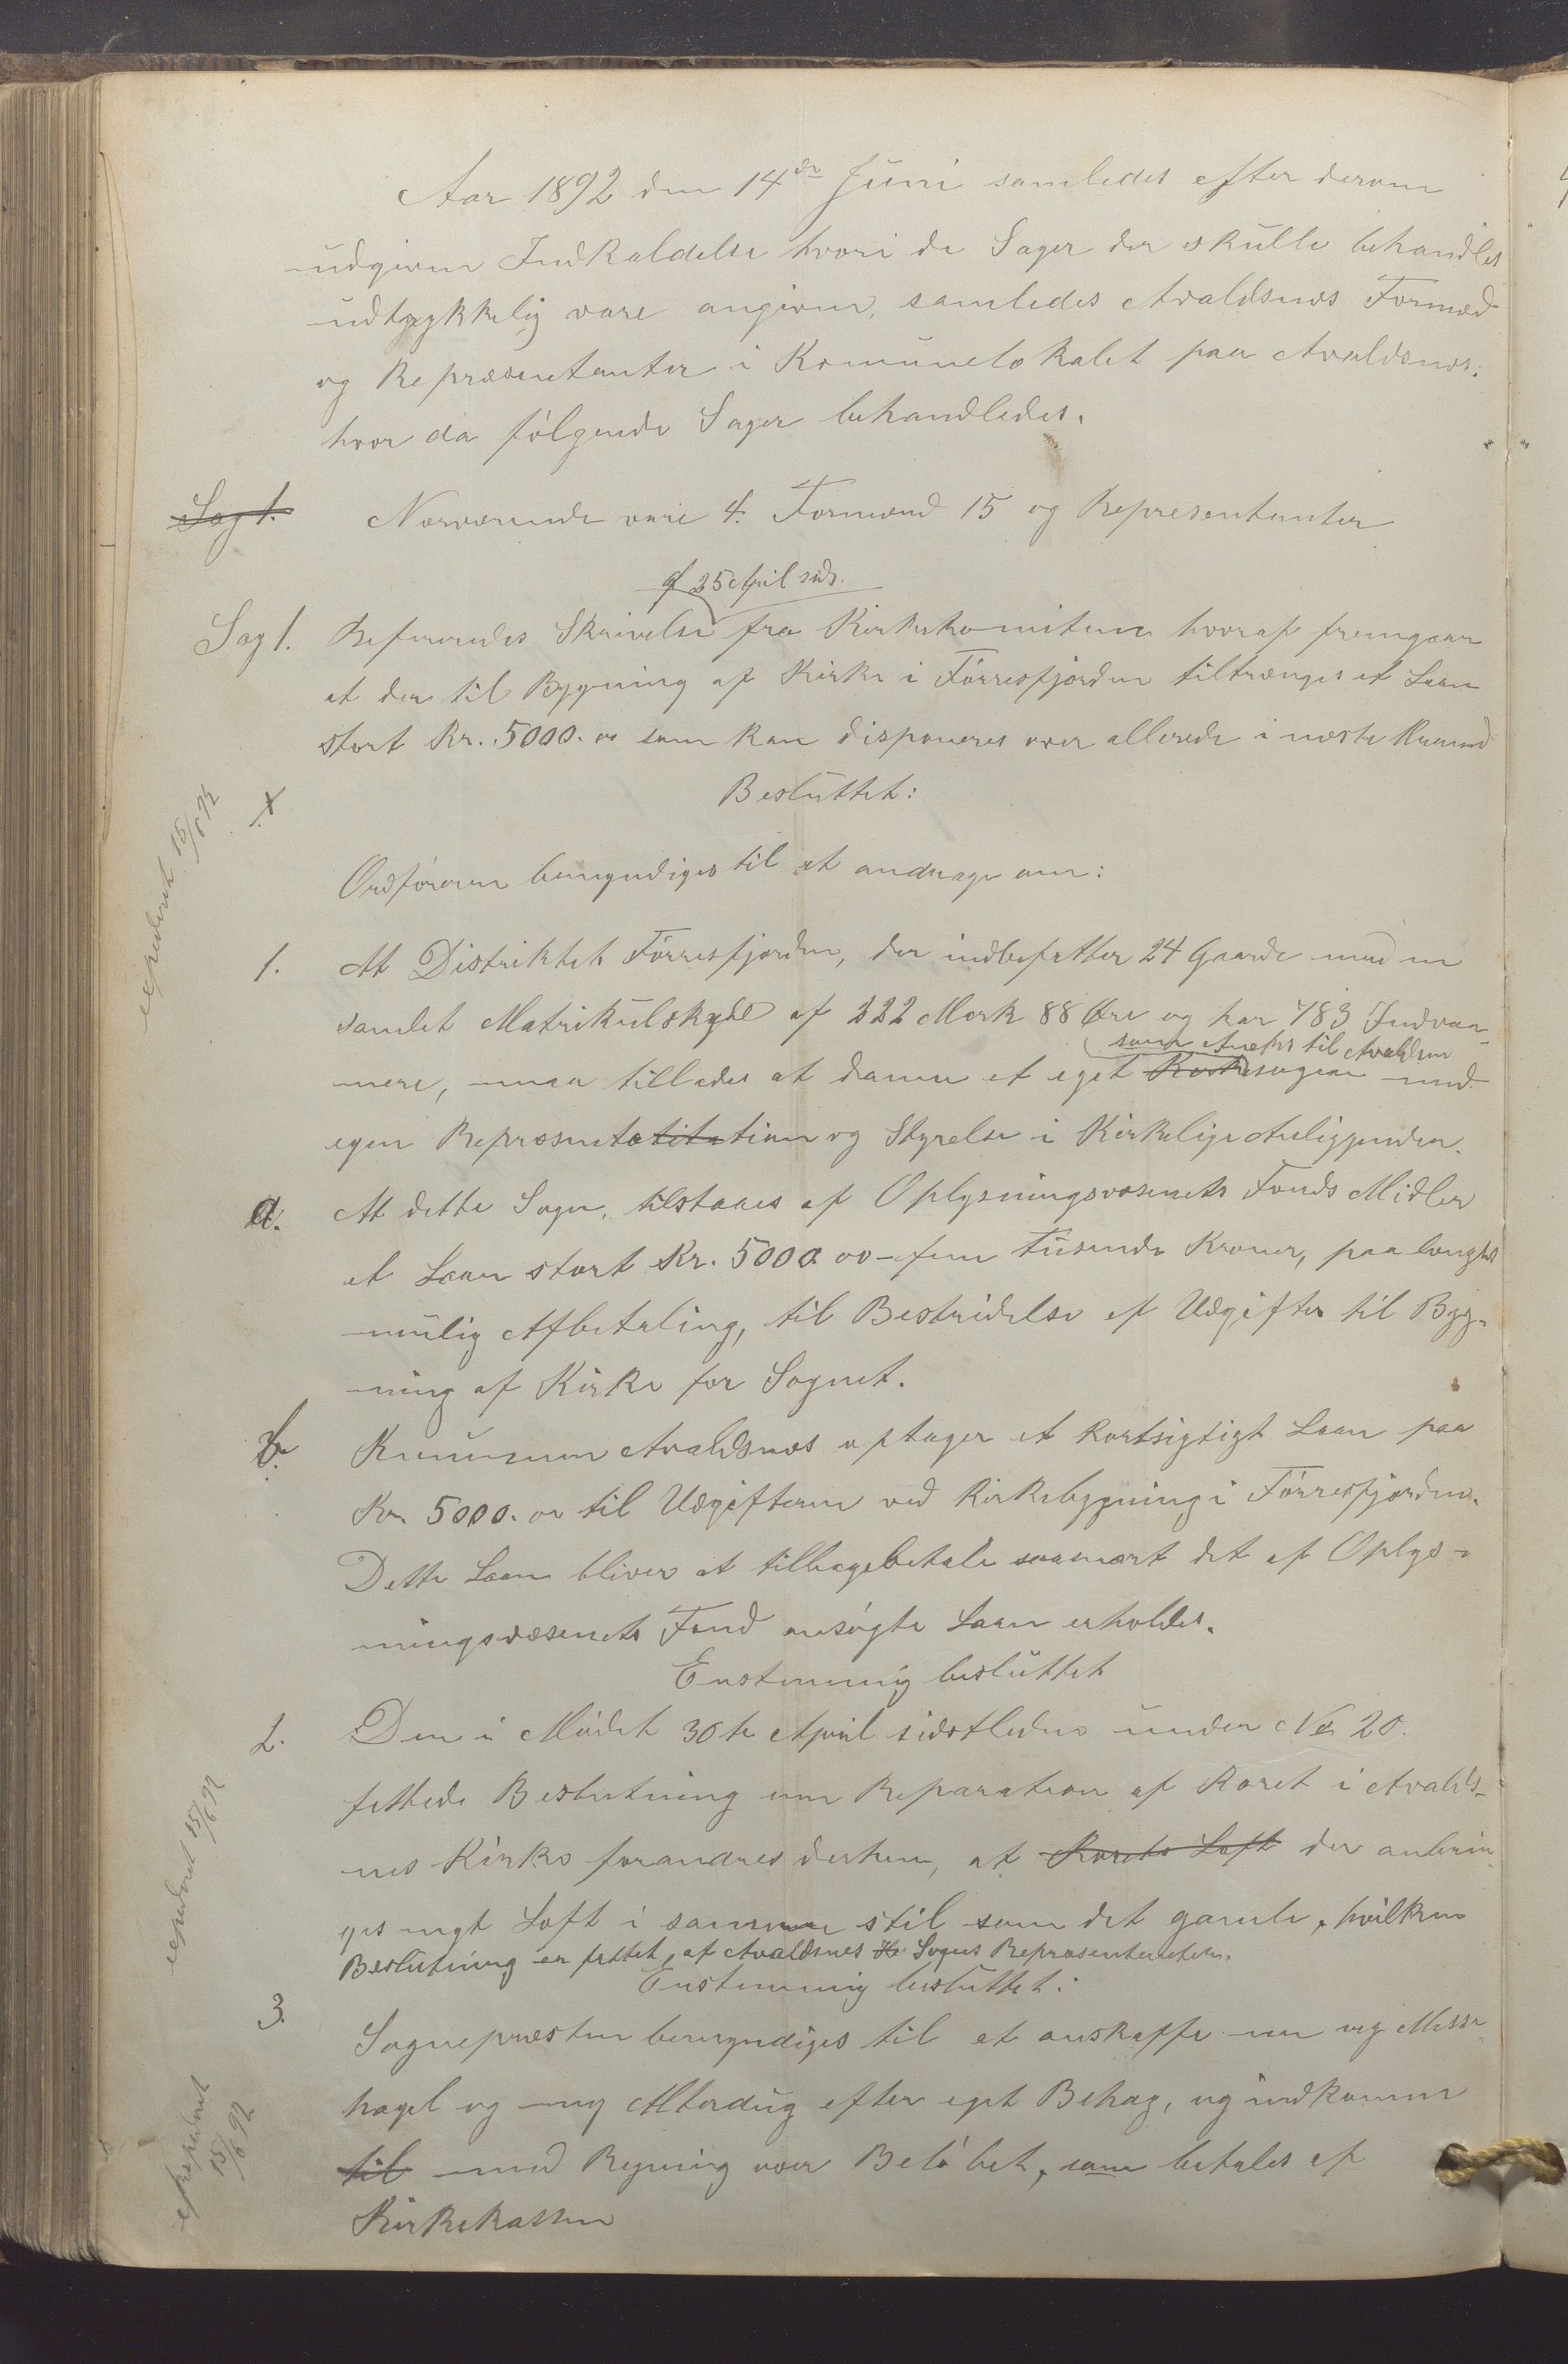 Aar 1892 den 14de Juni samledes efter derom
udgiven Indkaldelse hvori de Sager der skulle behandles
udtrykkelig vare angiven, samledes Avaldsnes Formæd
og Repræsentanter i Komunelokalet paa Avaldsnes.
hvor da følgende Sager behandledes.
Sag 1. Nærværende vare 4. Formænd 15 og Representanter
af 25 April sids.
Sag 1. Refereredes Skrivelse fra Kirkekomiteen hvoraf fremgaar
at der til Bygning af Kirke i Førresfjorden tiltrænges et Laan
stort Kr. 5000.00 som kan disponeres over allerede i næste Maaned
Besluttet:
expederet 15/6 92
Ordføreren bemyndiges til at andrage om:
1. At Distriktet Førresfjorden, der indbefatter 24 Gaarde med en
samlet Matrikulskyld af 222 Mark 88 Øre og har 783 Indvaa-
som Aneks til Avaldsn
nere, maa tillades at danne et eget Kirkesogn med
egen Repræsentatitation og Styrelse i Kirkelige Anliggender.
a. At dette Sogn, tilstaaes af Oplysningsvæsenets Fonds Midler
et Laan stort Kr. 5000.00 - fem Tusende Kroner, paa længst
mulig Afbetaling, til Bestridelse af Udgifter til Byg-
ning af Kirke for Sognet.
b. Kommunen Avaldsnæs optager et kortsigtigt Laan paa
Kr. 5000.00 til Udgifterne ved Kirkebygning i Førresfjorden.
Dette Laan bliver at tilbagebetale saasnart det af Oplys-
ningsvæsenets Fond ansøgte Laan erholdes.
Enstemmig besluttet
2. Den i Mødet 30te April sidstleden under No 20.
fattede Beslutning om Reparation af Koret i Avalds-
nes Kirke forandres derhen, at Korets Loft der anbrin-
ges nyt Loft i samme stil som det gamle, hvilken
Beslutning er fattet af Avaldsnes Sogns Repræsentanter.
Enstemmig besluttet:
expederet 15/6 92
3. Sognepræsten bemyndiges til at anskaffe en ny Messe
hagel og ny Alterdug efter eget Behag, og indkomme
til med Regning over Beløbet, som betales af
Kirkekassen
expederet
15/6 92